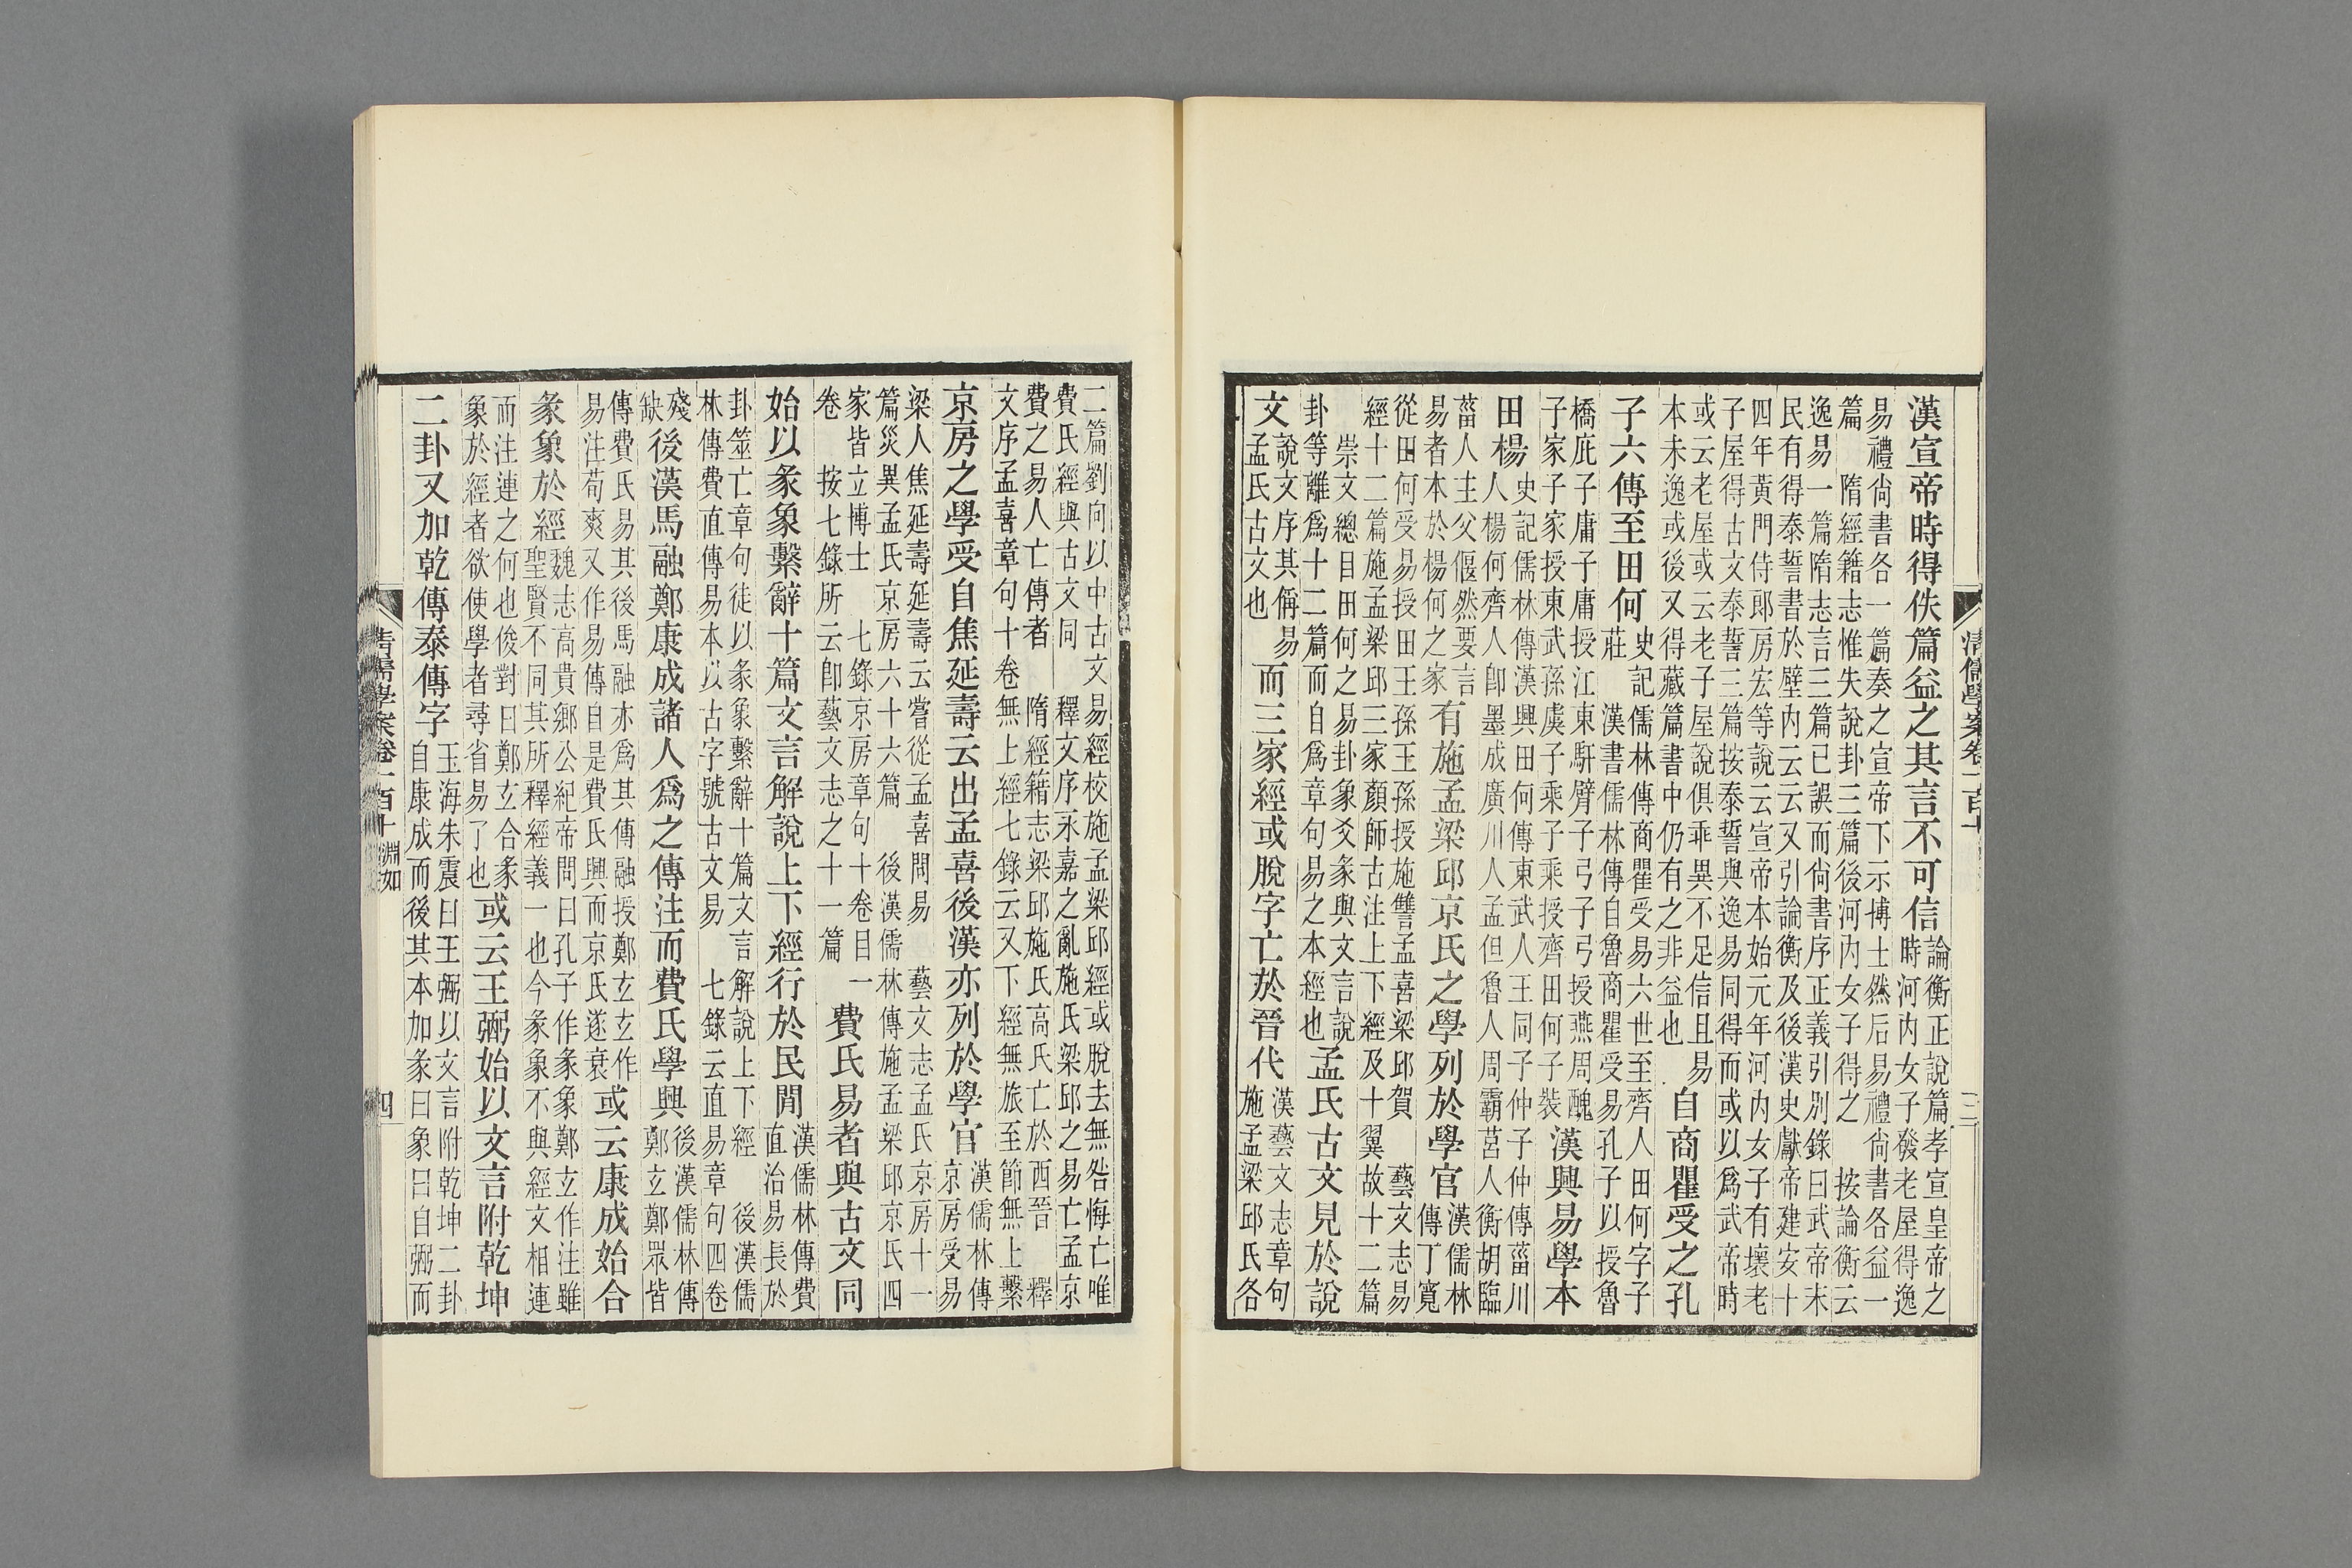 漢宣帝時得佚篇益之其言不可信論衡正說篇孝宣皇帝之時河內女子發老屋得逸
易禮尚書各一篇奏之宣帝下示博士然后易禮尚書各益一
篇 隋經籍志惟失說卦三篇後河內女子得之 按論衡云
逸易一篇隋志言三篇已誤而尚書序正義引別錄曰武帝末
民有得泰誓書於壁內云云又引論衡及後漢史獻帝建安十
四年黃門侍郎房宏等說云宣帝本始元年河內女子有壞老
子屋得古文泰誓三篇按泰誓與逸易同得而或以爲武帝時
或云老屋或云老子屋說俱乖異不足信且易本未逸或後又得藏篇書中仍有之非益也自商瞿受之孔
子六傳至田何史記儒林傳商瞿受易六世至齊人田何字子莊 漢書儒林傳自魯商瞿受易孔子以授魯
橋庇子庸子庸授江東馯臂子弓子弓授燕周醜子家子家授東武孫虞子乘子乘授齊田何子裝漢興易學本
田楊史記儒林傳漢興田何傳東武人王同子仲子仲傳菑川人楊何齊人卽墨成廣川人孟但魯人周霸莒人衡胡臨
菑人主父偃然要言易者本於楊何之家有施孟梁邱京氏之學列於學官漢儒林傳丁寬
從田何受易授田王孫王孫授施讐孟喜梁邱賀 藝文志易
經十二篇施孟梁邱三家顏師古注上下經及十翼故十二篇
崇文總目田何之易卦象爻彖與文言說卦等離爲十二篇而自爲章句易之本經也孟氏古文見於說
文說文序其偁易孟氏古文也而三家經或脫字亡於晉代漢藝文志章句施孟梁邱氏各
清儒學案卷一百十 三
二篇劉向以中古文易經校施孟梁邱經或脫去無咎悔亡唯
費氏經與古文同 釋文序永嘉之亂施氏梁邱之易亡孟京
費之易人亡傳者 隋經籍志梁邱施氏高氏亡於西晉 釋
文序孟喜章句十卷無上經七錄云又下經無旅至節無上繫
京房之學受自焦延壽云出孟喜後漢亦列於學官漢儒林傳京房受易
梁人焦延壽延壽云嘗從孟喜問易 藝文志孟氏京房十一
篇災異孟氏京房六十六篇 後漢儒林傳施孟梁邱京氏四
家皆立博士 七錄京房章句十卷目一卷 按七錄所云卽藝文志之十一篇費氏易者與古文同
始以彖象繫辭十篇文言解說上下經行於民閒漢儒林傳費直治易長於
卦筮亡章句徒以彖象繫辭十篇文言解說上下經 後漢儒
林傳費直傳易本以古字號古文易 七錄云直易章句四卷
殘缺後漢馬融鄭康成諸人爲之傳注而費氏學興後漢儒林傳鄭玄鄭眾皆
傳費氏易其後馬融亦爲其傳融授鄭玄玄作易注荀爽又作易傳自是費氏興而京氏遂衰或云康成始合
彖象於經魏志高貴鄉公紀帝問曰孔子作彖象鄭玄作注雖聖賢不同其所釋經義一也今彖象不與經文相連
而注連之何也俊對曰鄭玄合彖象於經者欲使學者尋省易了也或云王弼始以文言附乾坤
二卦又加乾傳泰傳字玉海朱震曰王弼以文言附乾坤二卦自康成而後其本加彖曰象曰自弼而
清儒學案卷一百十 淵如 四